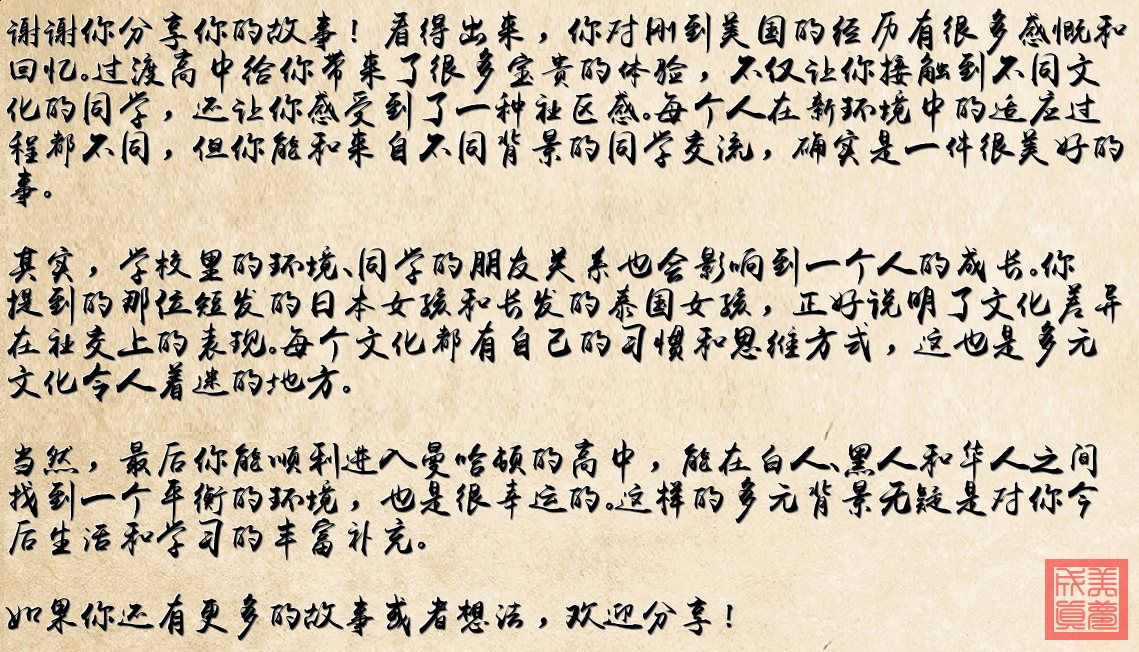 谢谢你分享你的故事！看得出来，你对刚到美国的经历有很多感慨和
回忆。过渡高中给你带来了很多宝贵的体验，不仅让你接触到不同文
化的同学，还让你感受到了一种社区感。每个人在新环境中的适应过
程都不同，但你能和来自不同背景的同学交流，确实是一件很美好的
事。
其实，学校里的环境、同学的朋友关系也会影响到一个人的成长。你
提到的那位短发的日本女孩和长发的泰国女孩，正好说明了文化差异
在社交上的表现。每个文化都有自己的习惯和思维方式，这也是多元
文化令人着迷的地方。
当然，最后你能顺利进入曼哈顿的高中，能在白人、黑人和华人之间
找到一个平衡的环境，也是很幸运的。这样的多元背景无疑是对你今
后生活和学习的丰富补充。
如果你还有更多的故事或者想法，欢迎分享！
美梦成真